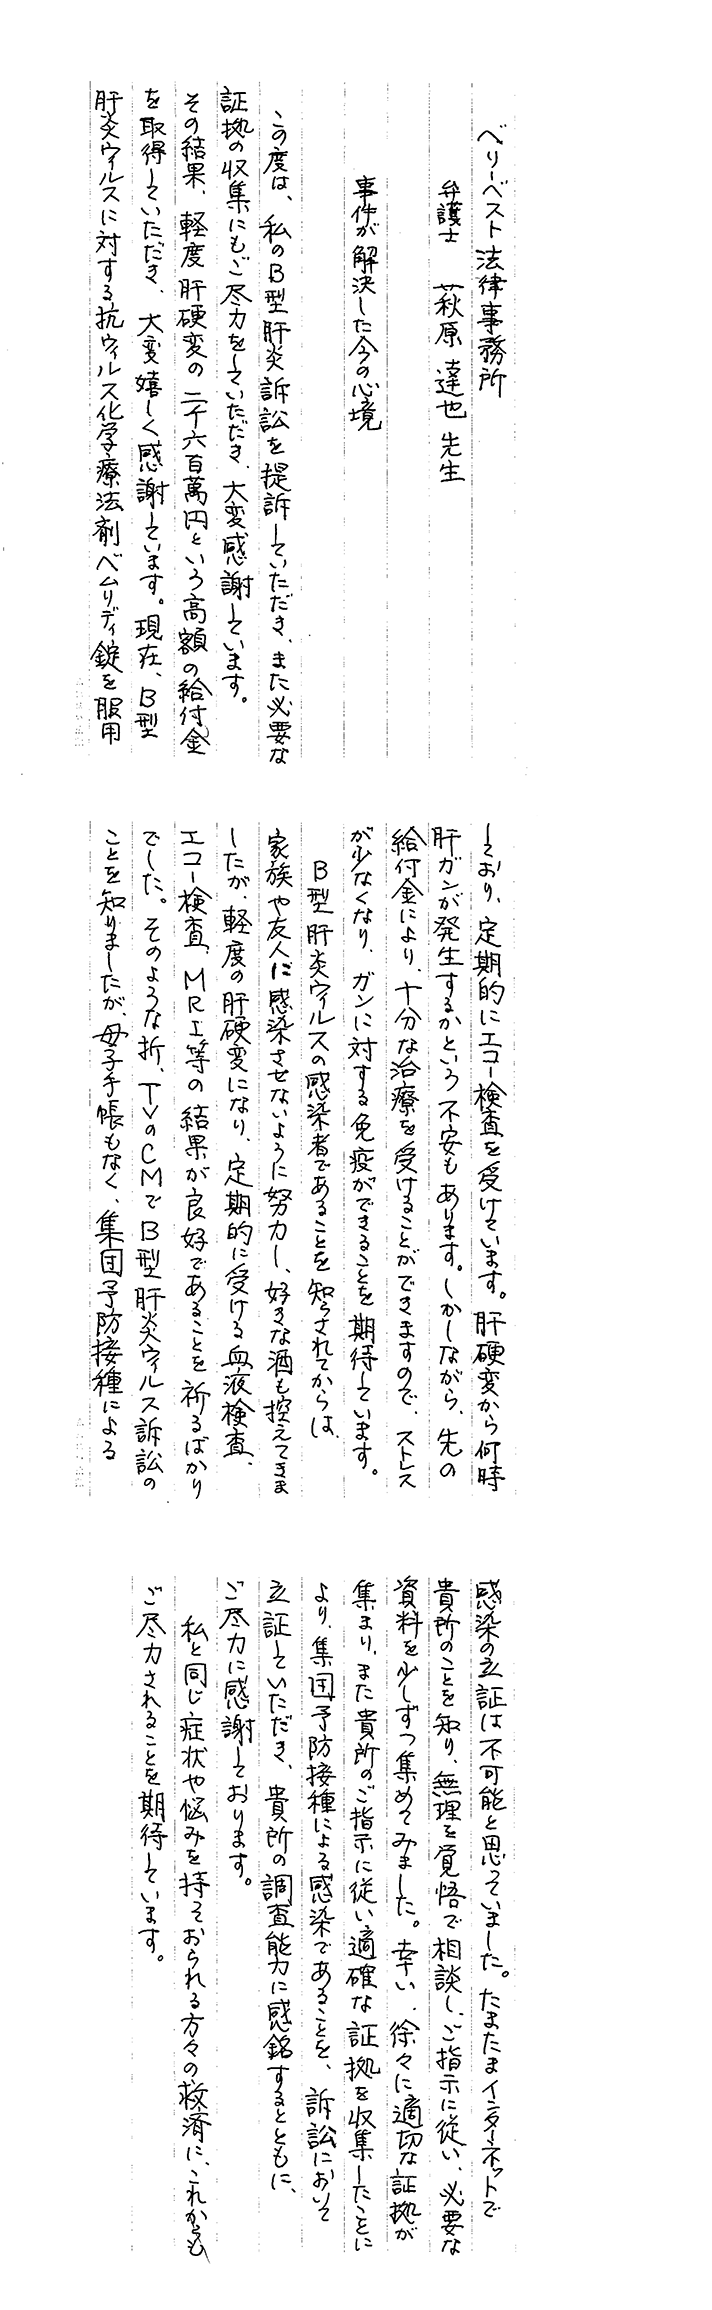 ベリーベスト法律事務所
弁護士 萩原達也先生
事件が解決した今の心境
この度は、私のB型肝炎訴訟を提訴していただき、また必要な
証拠の収集にもご尽力をしていただき、大変感謝しています。
その結果、軽度肝硬変の二千六百萬円という高額の給付金
を取得していただき、大変嬉しく感謝しています。現在、B型
肝炎ウィルスに対する抗ウィルス化学療法剤ベムリディ錠を服用
しており、定期的にエコー検査を受けています。肝硬変から何時
肝ガンが発生するかという不安もあります。しかしながら、先の
給付金により、十分な治療を受けることができますので、ストレス
が少なくなり、ガンに対する免疫ができることを期待しています。
B型肝炎ウィルスの感染者であることを知らされてからは、
家族や友人に感染させないように努力し、好きな酒も控えてきま
したが、軽度の肝硬変になり、定期的に受ける血液検査、
エコー検査、MRI等の結果が良好であることを祈るばかり
でした。そのような折、TVのCMでB型肝炎ウィルス訴訟の
ことを知りましたが、母子手帳もなく、集団予防接種による
感染の立証は不可能と思っていました。たまたまインターネットで
貴所のことを知り、無理を覚悟で相談し、ご指示に従い、必要な
資料を少しずつ集めてみました。幸い、徐々に適切な証拠が
集まり、また貴所のご指示に従い適確な証拠を収集したことに
より、集団予防接種による感染であることを、訴訟において
立証していただき、貴所の調査能力に感銘するとともに、
ご尽力に感謝しております。
私と同じ症状や悩みを持っておられる方々の救済に、これからも
ご尽力されることを期待しています。